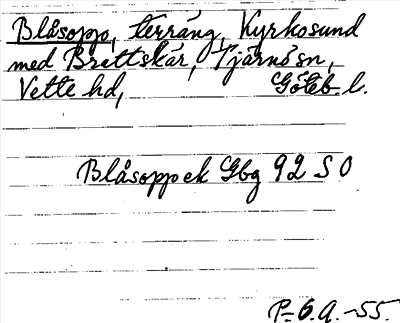 Blåsopp, terräng, Kyrkosund
med Brattskär, Tjärnösn,
Vette hd, Göteb l.
Blåsopp ek Gbg 92 S O
P.G.A. -55.